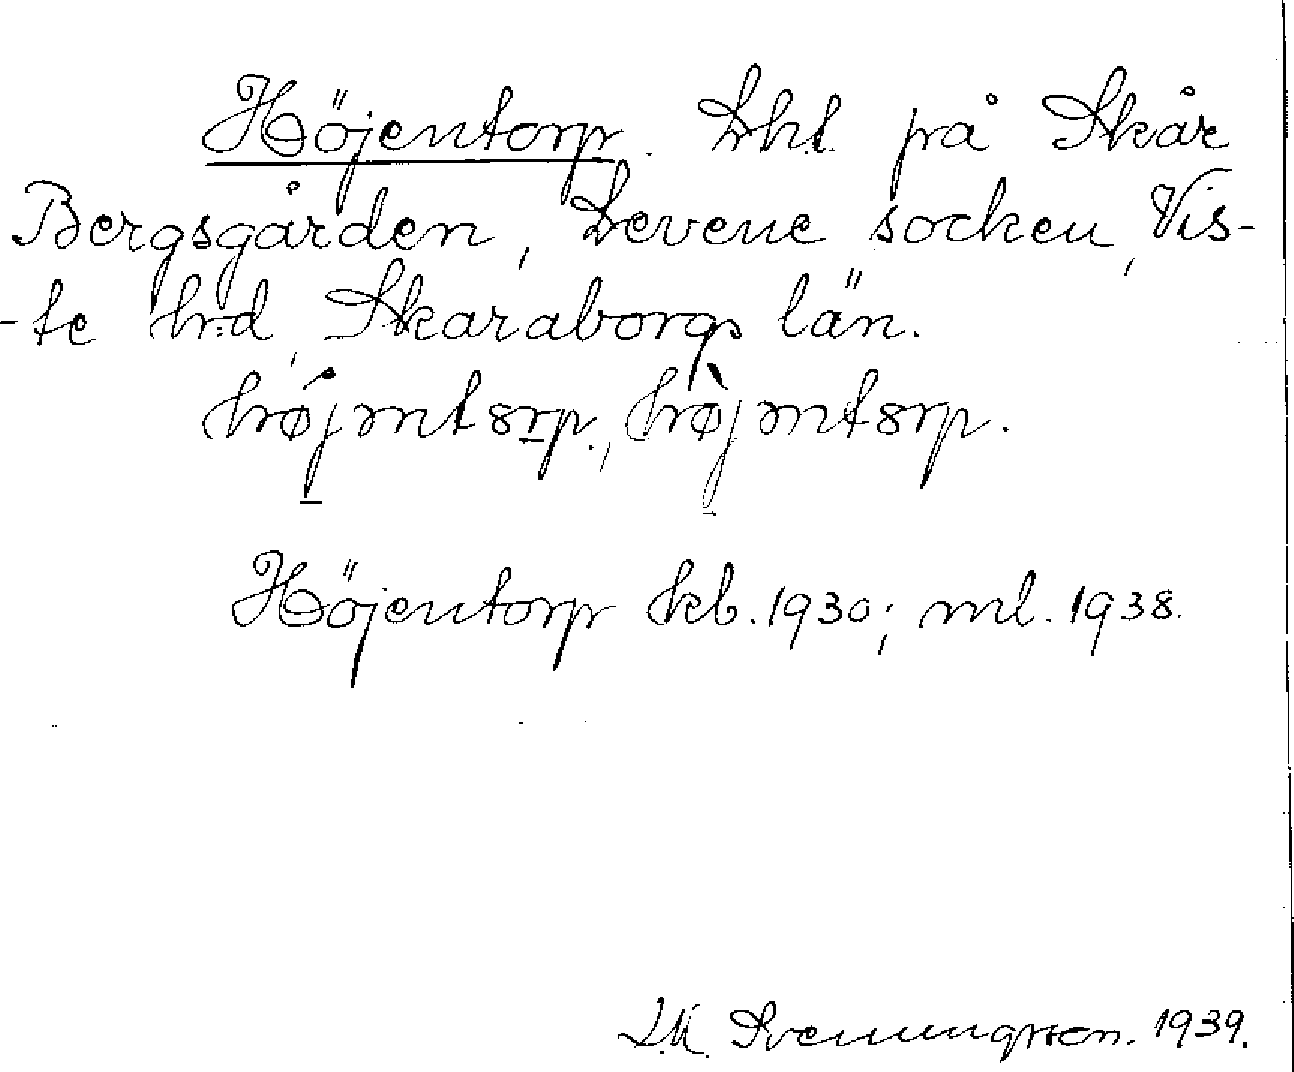 Höjentorp. Lht på Skår
Bergsgården, Levene socken, Vis-
-te hrd, Skaraborgs län.
hǿjəntɞrp, hø̀jəntɞrp.
Höjentorp kb. 1930; ml. 1938.
Svenungsson. 1939.